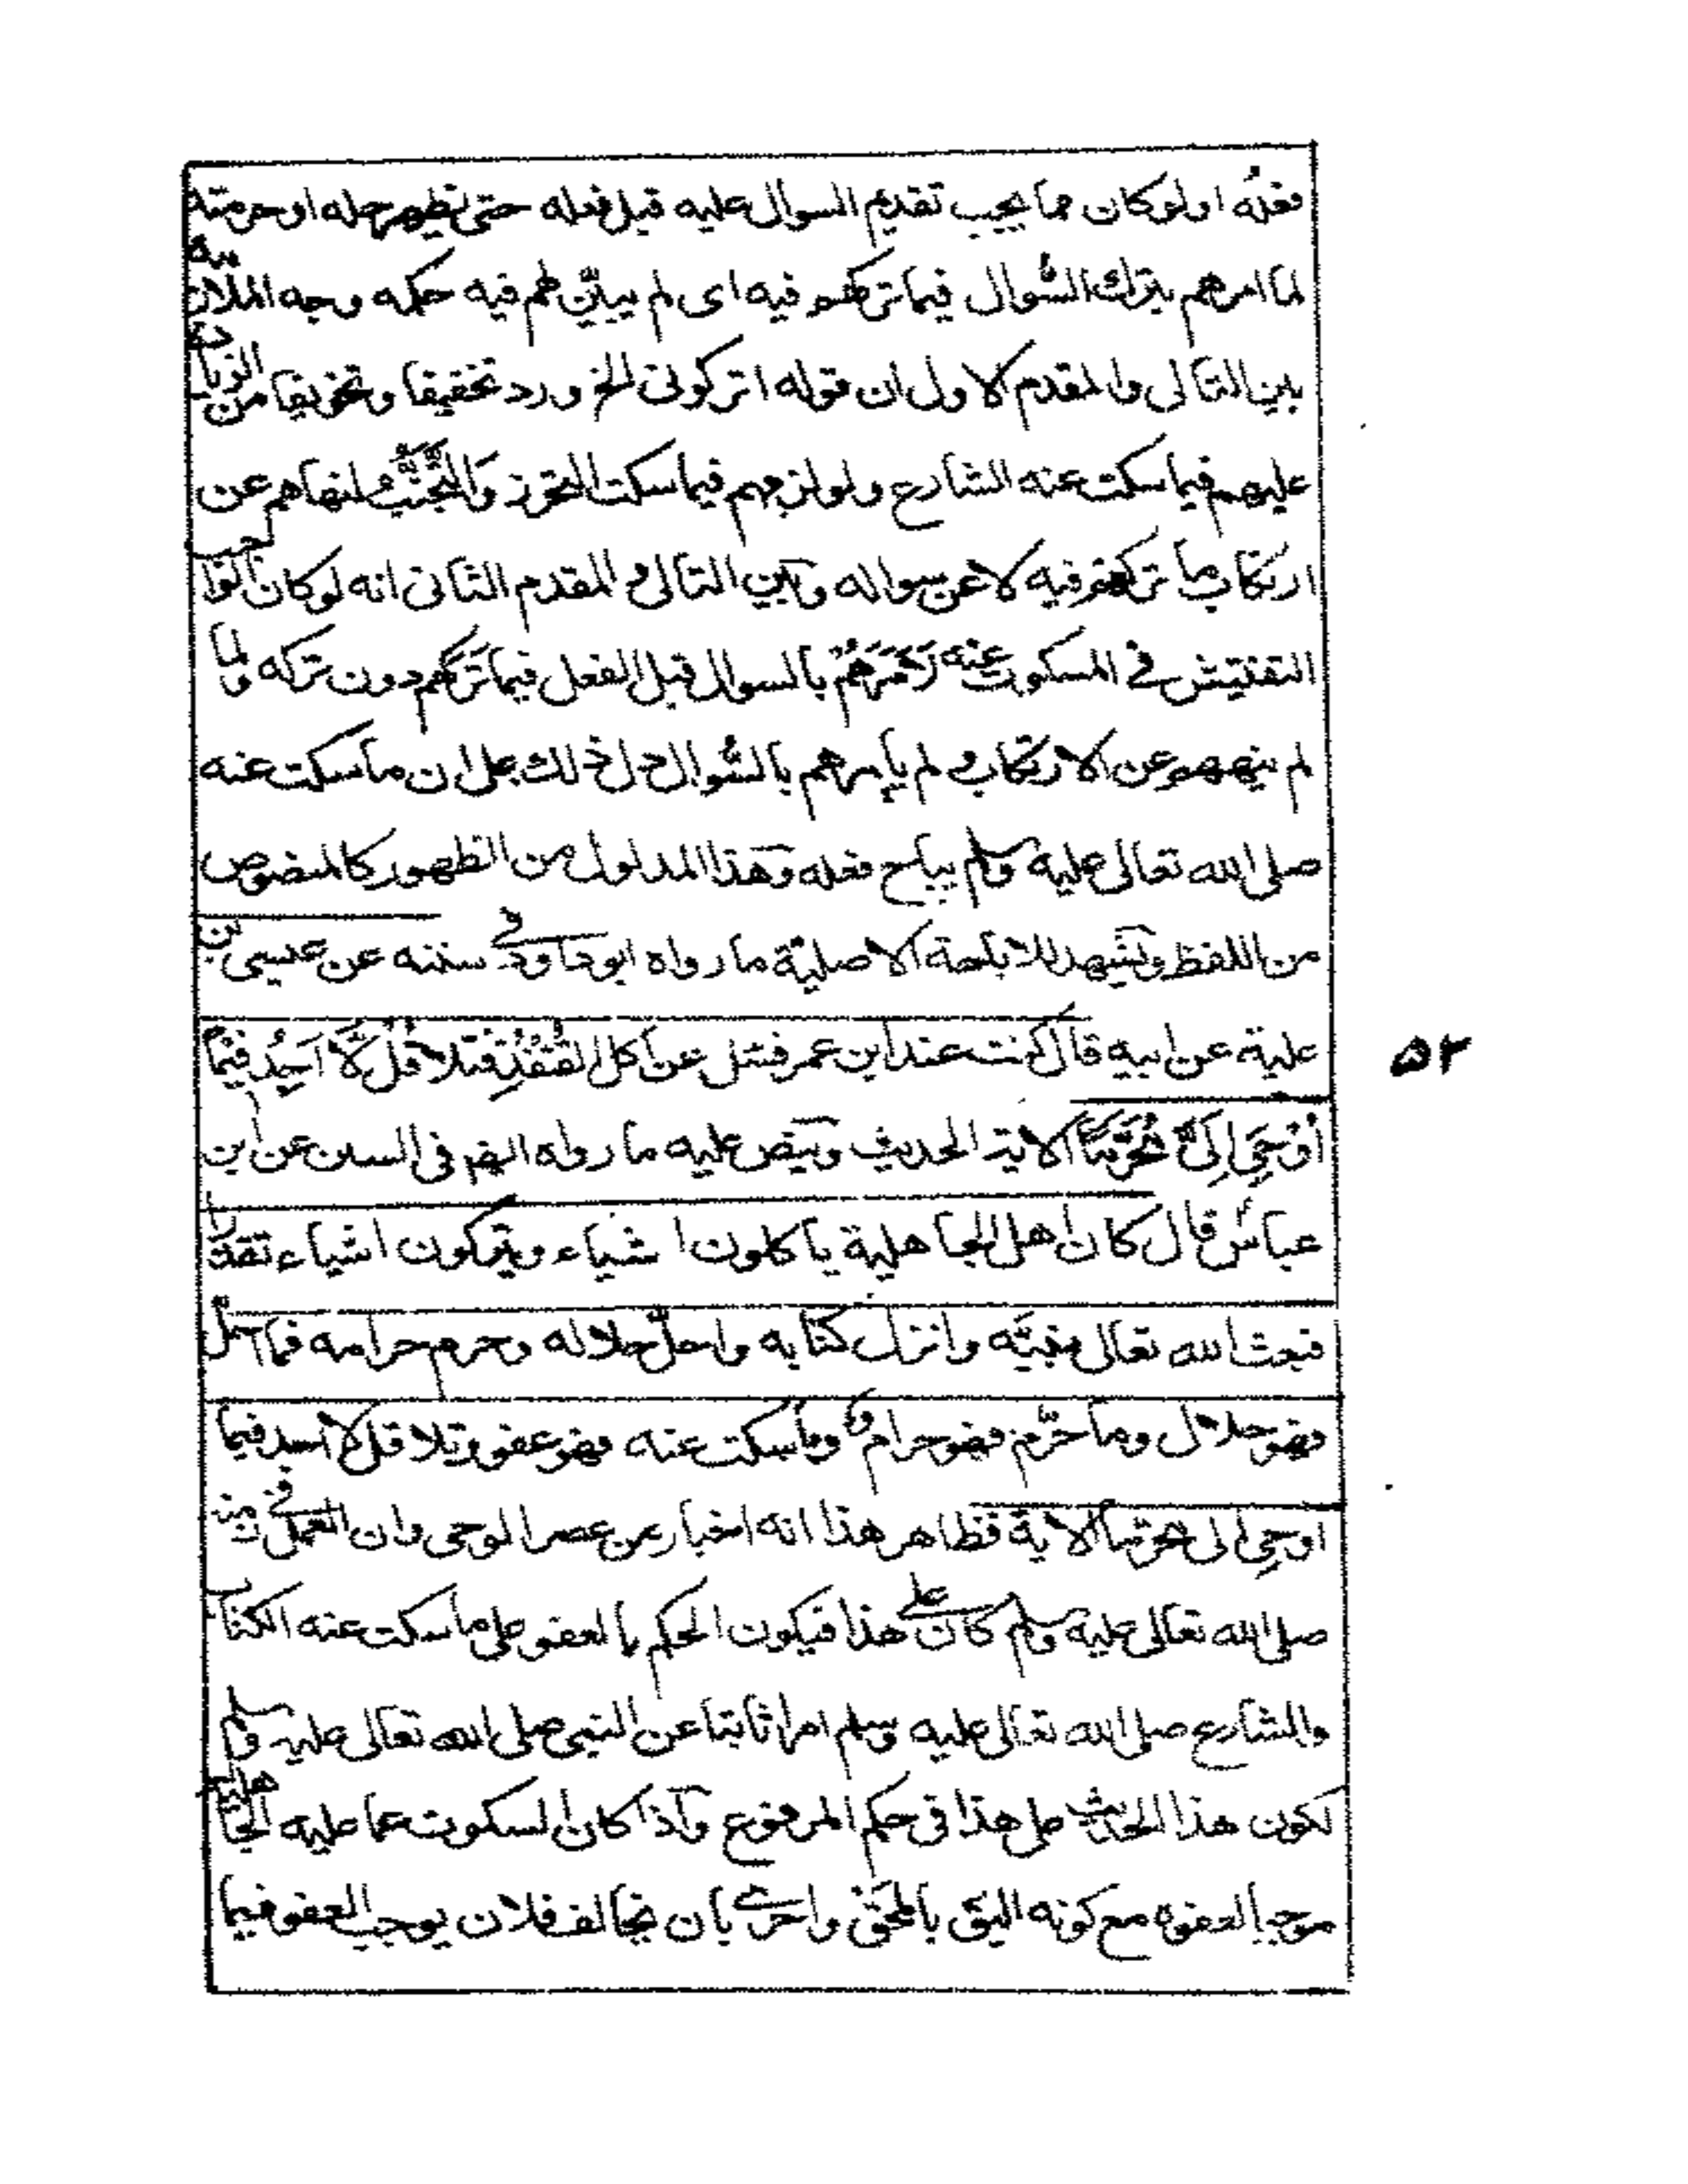 فعله او لو كان مما يجب تقديم السوال عليه قبل فعله حتى يظهر حله او حرمته
لما امرهم بترك السُّوال فيما تركهم فيه اى لم يبيّن لهم فيه حكمه وجه الملازمة
بين التالى والمقدم الاول ان قوله اتركونى الخ ورد تخفيفا وتخويفا من الزيادة
عليهم فيما سكت عنه الشارع ولو لزمهم فيما سكت التحرز وَالتَّجَنُّب لنهاهم عن
ارتكاب ما تركهم فيه لا عن سواله وبين التالى والمقدم الثانى انه لو كان الواجب
التفتيش فى المسكوت عنه لَاَمَرَهُمْ بالسوال قبل الفعل فيما تركهم دون تركه ولما
لم ينههم عن الارتكاب ولم يأمرهم بالسُّوال دل ذلك على ان ما سكت عنه
صلى الله تعالى عليه وسلم يباح فعله وهذا المدلول من الظهور كالمنصوص
من اللفظ ويشهد للاباحة الاصليّة ما رواه ابو داود فى سننه عن عيسى بن
٥٢
علية عن ابيه قال كنت عند ابن عمر فسئل عن اكل القُنْفُذِ فتلا قُلْ لَّا اَجِدُ فِيْمَا
اُوْحِيَ اِلَيَّ مُحَرَّمًا الاية الحديث وينص عليه ما رواه ايضا فى السنن عن ابن
عباس قال كان اهل الجاهلية ياكلون اشياء ويتركون اشياء تقذرا
فبعث الله تعالى نبيَّه وانزل كتابه واحلّ حلاله وحرم حرامه فما احل
فهو حلال وما حرّم فهو حرام وما سكت عنه فهو عفو وتلا قل لا اجد فيما
اوحِى الى محرّما الاية فظاهر هذا انه اخبار عن عصر الوحى وان العمل فى زمنه
صلى الله تعالى عليه وسلم كان على هذا فيكون الحكم بالعفو على ما سكت عنه الكتاب
والشارع صلى الله تعالى عليه وسلم امرا ثابتا عن النبى صلى الله تعالى عليه وسلم
لكون هذا الحديث على هذا فى حكم المرفوع واذا كان السكوت عما عليه الجاهلية
موجبا لعفوه مع كونه اليق بالمحق واحرى بان يخالف فلان يوجب العفو فيما